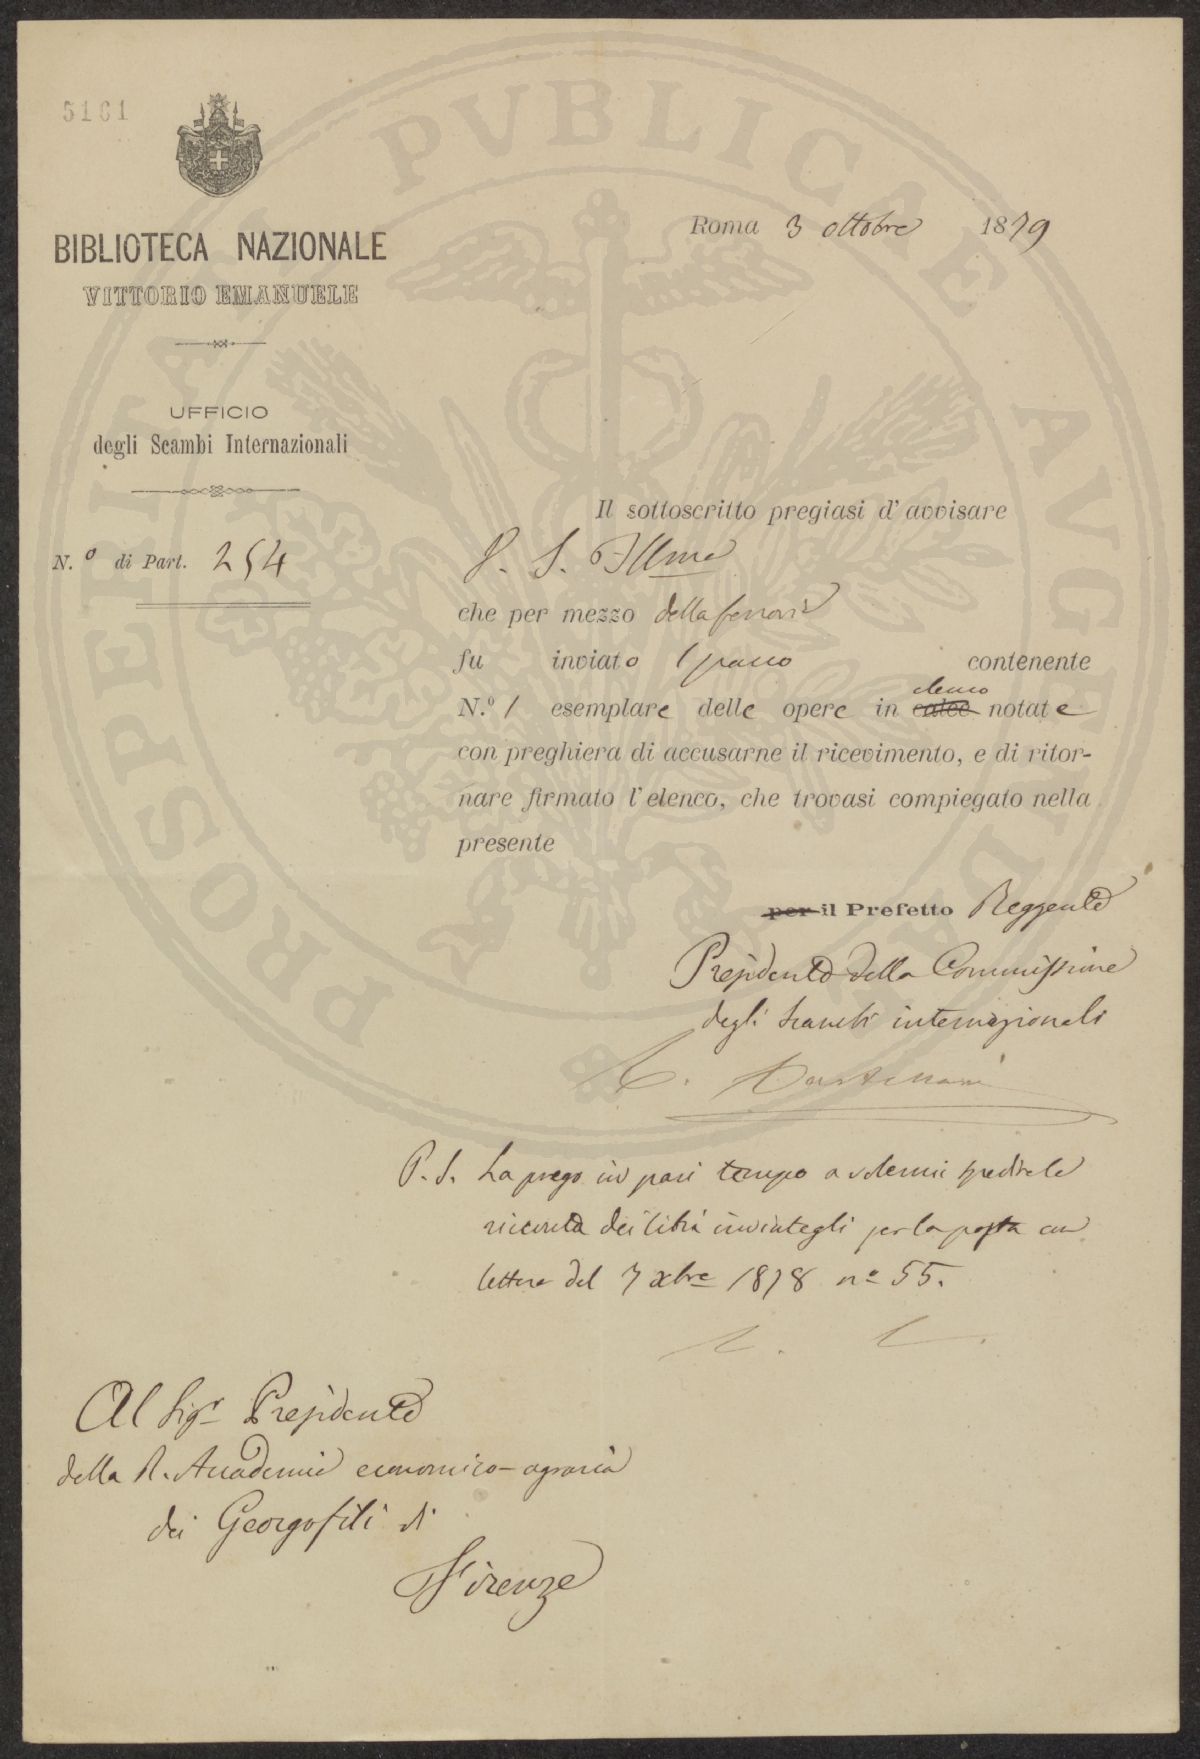 5161
BIBLIOTECA NAZIONALE
VITTORIO EMANUELE
UFFICIO
degli Scambi Internazionali
N.º di Part. 254
Roma 3 ottobre 1879
Il sottoscritto pregiasi d'avvisare
V. S. Illma
che per mezzo della ferrovia
fu inviato 1 pacco contenente
N.º 1 esemplare delle opere in calce elenco notate
con preghiera di accusarne il ricevimento, e di ritor-
nare firmato l'elenco, che trovasi compiegato nella
presente
per il Prefetto Reggente
Presidente della Commissione
degli scambi internazionali
C. Castellani
P. S. La prego in pari tempo a volermi spedire la
ricevuta dei libri inviategli per la posta con
lettera del 7 xbre 1878 nº 55.
Al Sigr Presidente
della R. Accademia economico-agraria
dei Georgofili di
Firenze
PROSPERITATI PVBLICAE AVGENDAE